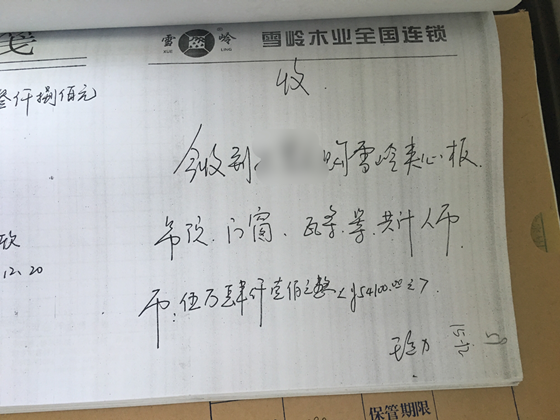 笺
叁仟捌佰元
款
12.20
雪 岭
XUE LING
雪岭木业全国连锁
收
今收到 购雪岭夹心板
吊顶、门窗、瓦条.等.共计人币
币:伍万肆仟壹佰元整<¥54100.00元>
15
保管期限